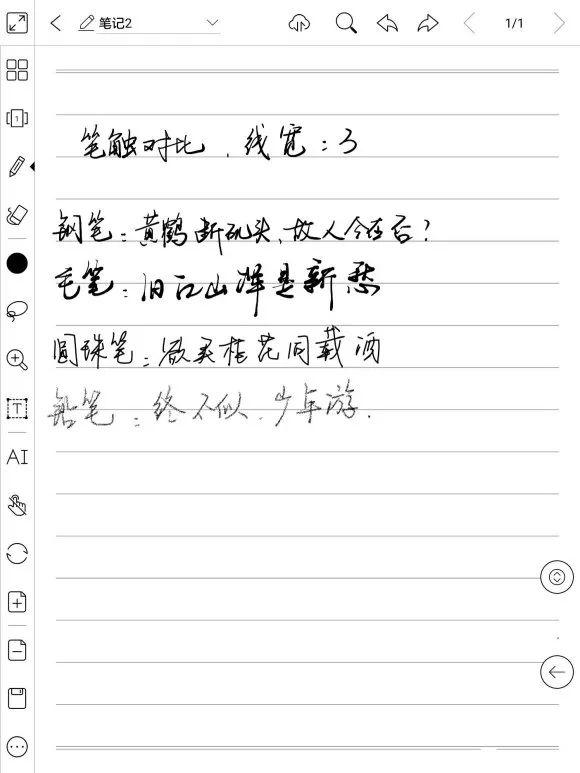 笔记2
1/1
笔触对比，线宽：3
钢笔：黄鹤断矶头，故人今在否？
毛笔：旧江山浑是新愁
圆珠笔：欲买桂花同载酒
铅笔：终不似，少年游.
T
AI